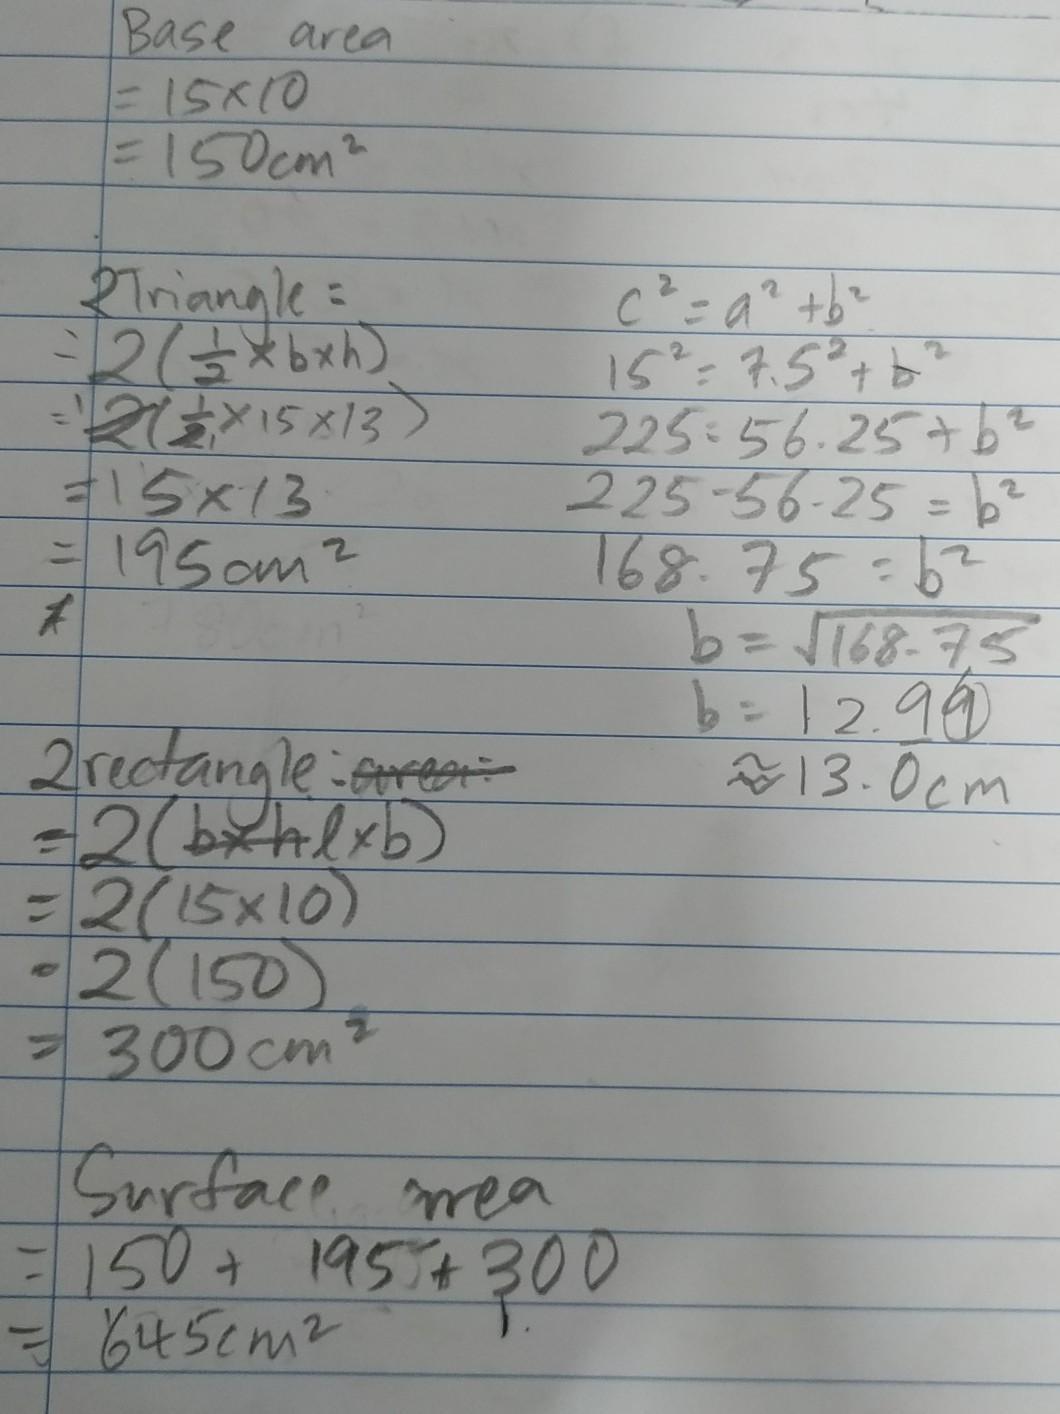 Base area
= 15×10
= 150cm²
2Triangle =
= 2(½×b×h)
= 2(½×15×13)
= 15×13
= 195cm²
c² = a² + b²
15² = 7.5² + b²
225 = 56.25 + b²
225-56.25 = b²
168.75 = b²
b = √168.75
b = 12.99
≈ 13.0cm
2rectangle: area =
= 2(b×h l×b)
= 2(15×10)
= 2(150)
= 300cm²
Surface area
= 150 + 195 + 300
= 645cm²